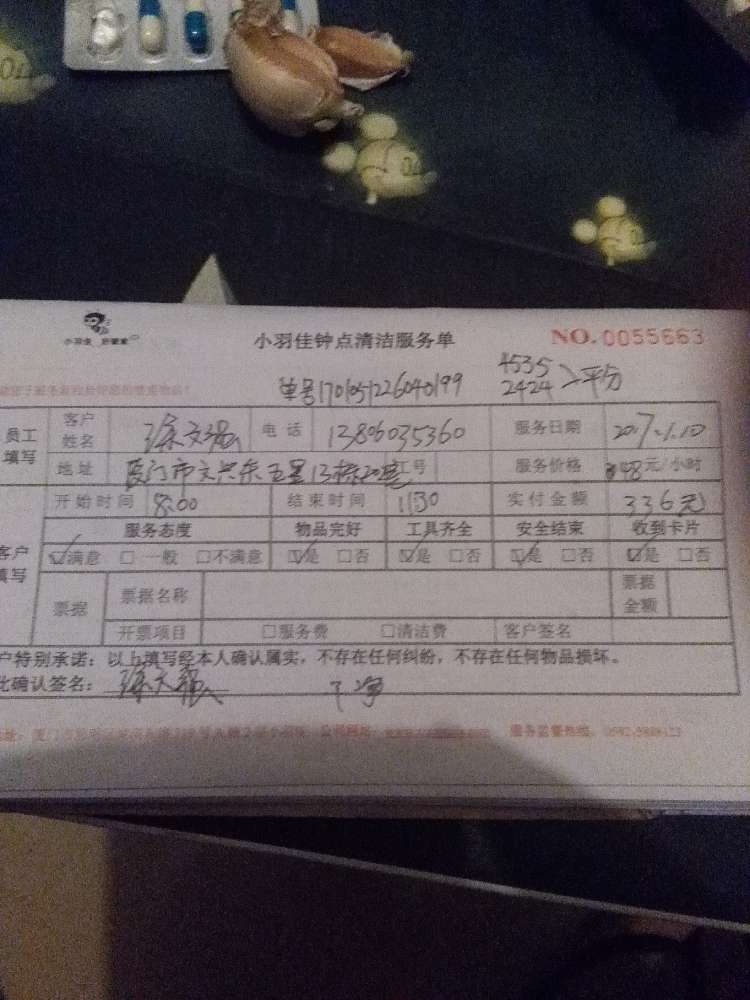 小羽佳 好管家
小羽佳钟点清洁服务单 NO.0055663
单号1701051226040199 4535 2424 >平分
员工填写 客户姓名 电话 13806035360 服务日期 2017.1.10
地址 厦门市 13栋 工号 服务价格 48元/小时
开始时间 8:00 结束时间 11:30 实付金额 336元
服务态度 物品完好 工具齐全 安全结束 收到卡片
客户填写 ☑满意 □一般 □不满意 ☑是 □否 ☑是 □否 ☑是 □否 ☑是 □否
票据 票据名称 票据金额
开票项目 □服务费 □清洁费 客户签名
户特别承诺：以上填写经本人确认属实，不存在任何纠纷，不存在任何物品损坏。
此确认签名： 干净
服务监督热线：